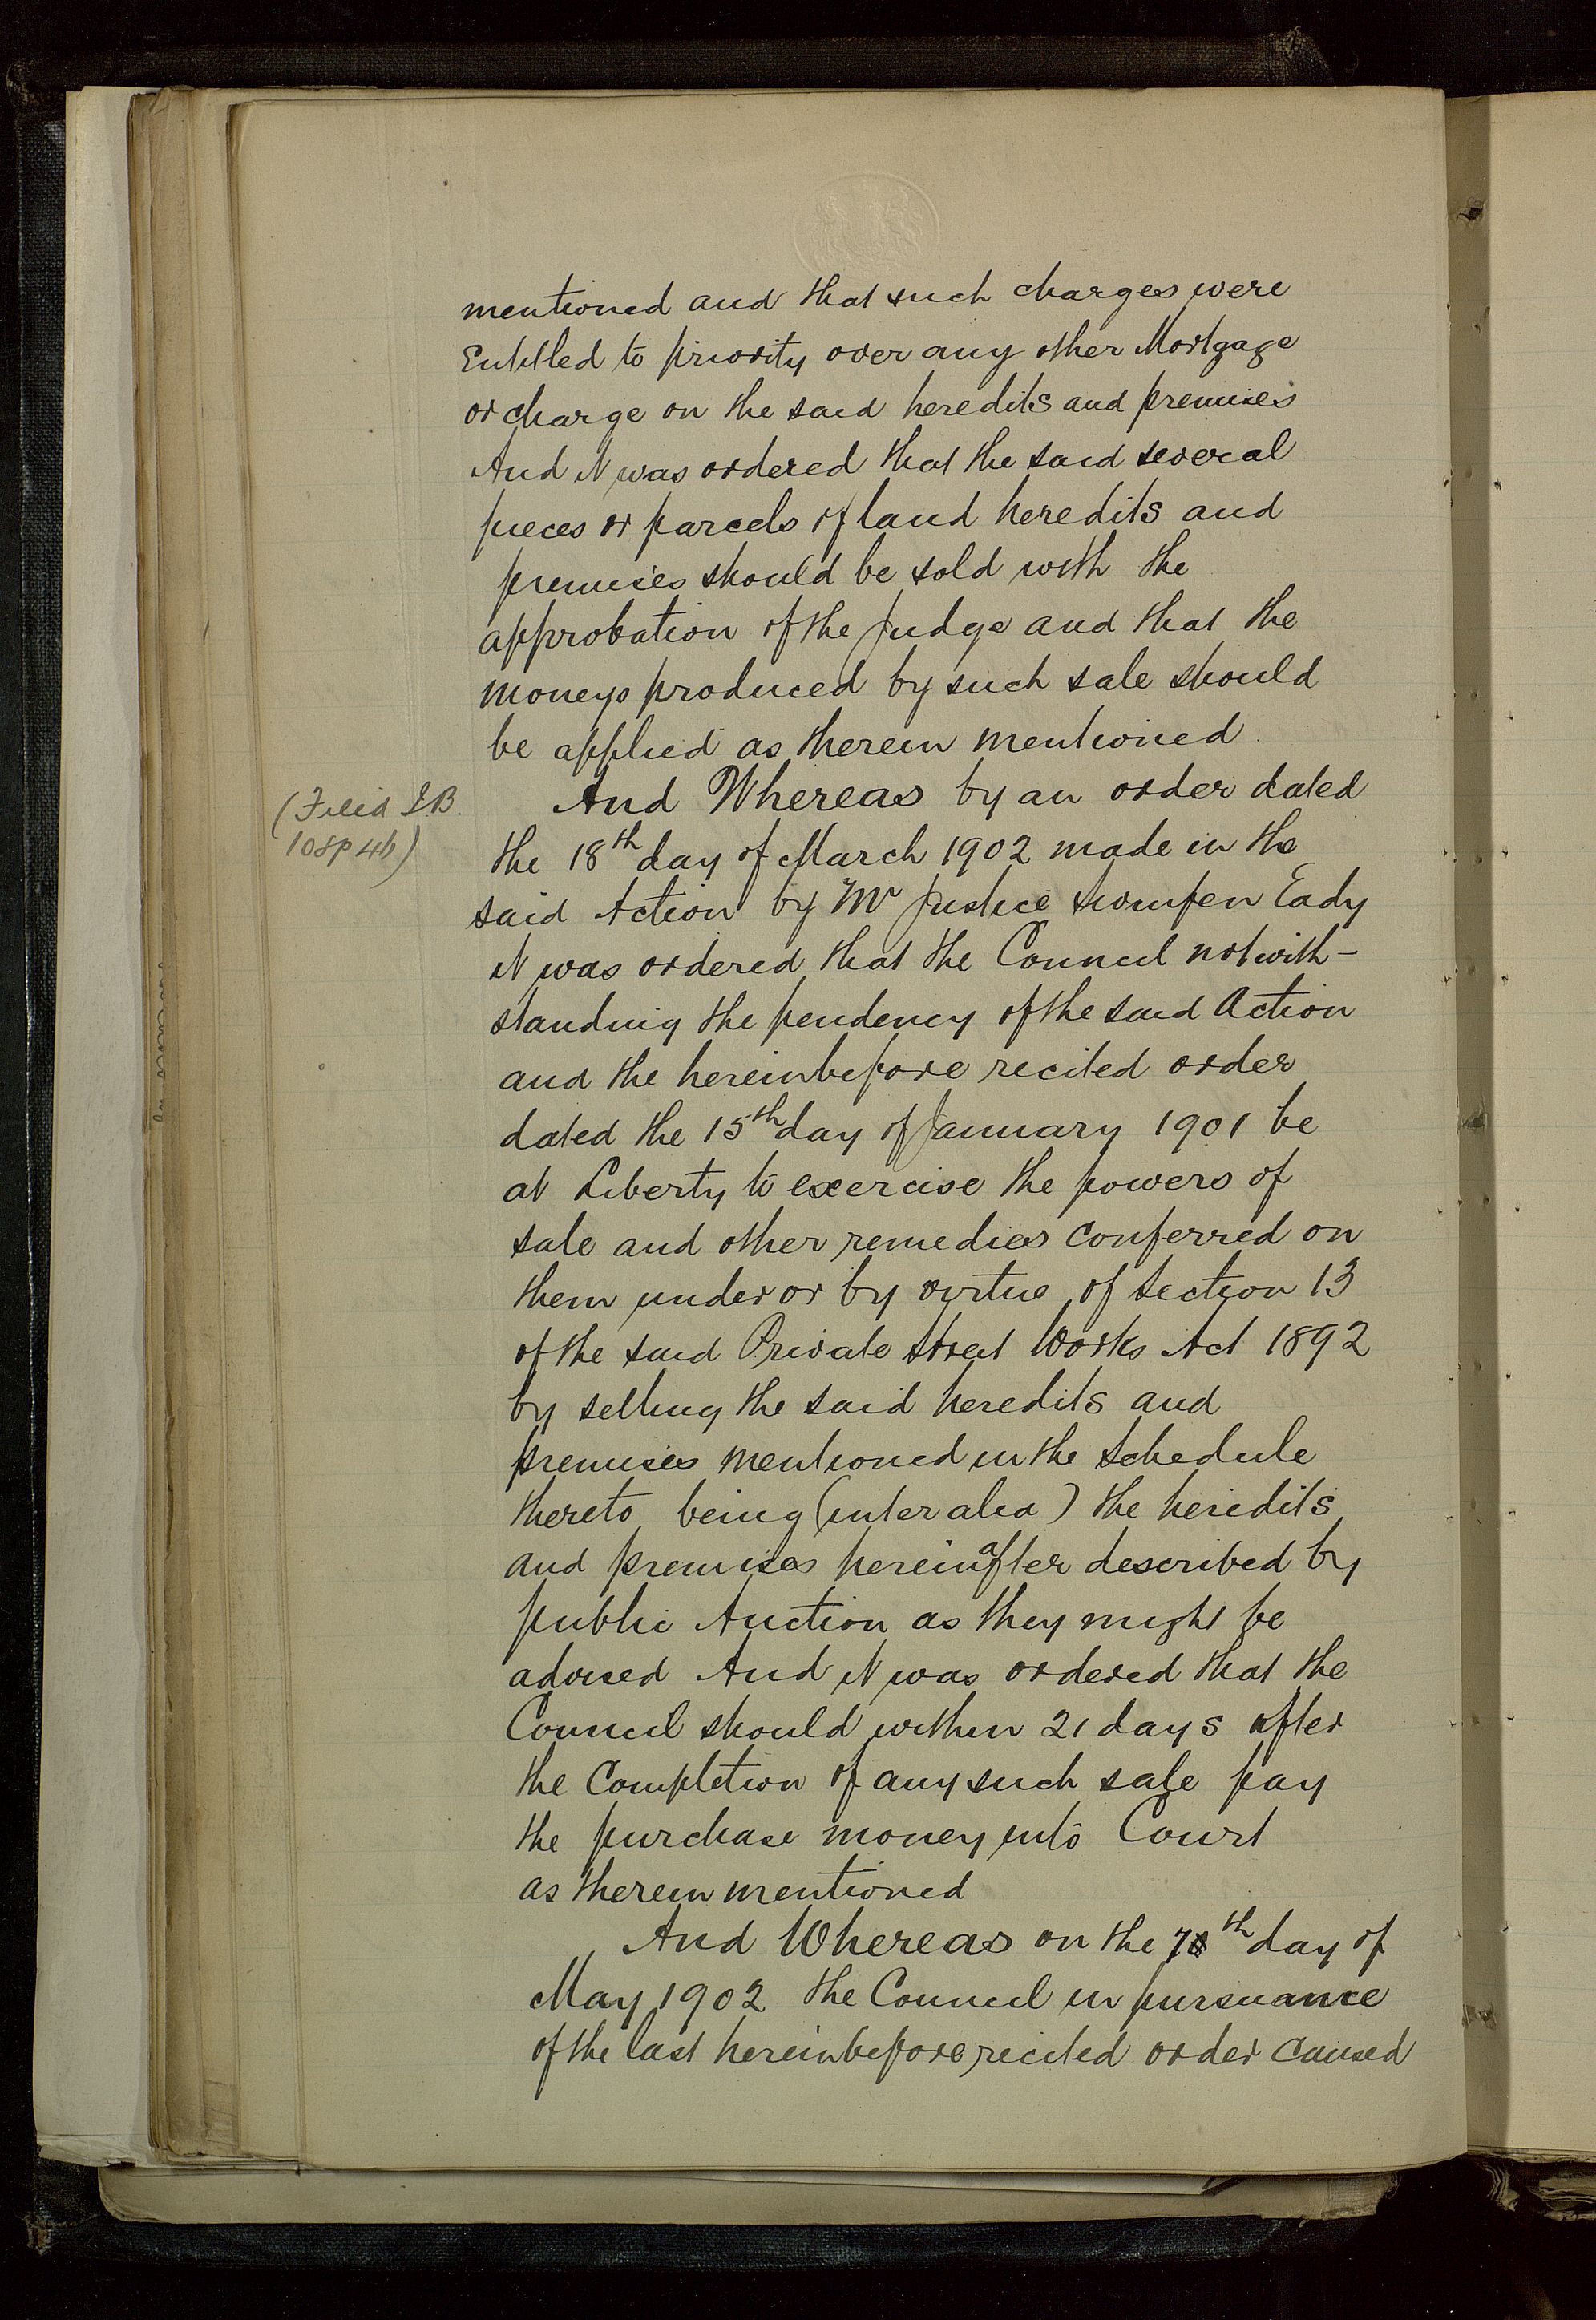 mentioned and that such charges were
Entitled to priority over any other Mortgage
or charge on the said heredits and premises
And it was ordered that the said several
pieces or parcels of land heredits and
premises should be sold with the
approbation of the Judge and that the
moneys produced by such sale should
be applied as therein mentioned
And Whereas by an order dated
(Filed
108p 46)
the 18th day of March 1902 made in the
said Action by Mr Justice Swinfen Eady
it was ordered that the Council notwith-
standing the pendency of the said Action
and the hereinbefore recited order
dated the 15th day of January 1901 be
at Liberty to exercise the powers of
sale and other remedies conferred on
them under or by virtue of Section 13
of the said Private Street Works Act 1892
by selling the said heredits and
premises mentioned in the Schedule
thereto being (inter alia) the heredits
and premises hereinafter described by
public Auction as they might be
advised And it was ordered that the
Council should within 21 days after
the Completion of any such sale pay
the purchase money into Court
as therein mentioned
And Whereas on the 7th day of
May 1902 the Council in pursuance
of the last hereinbefore recited order caused